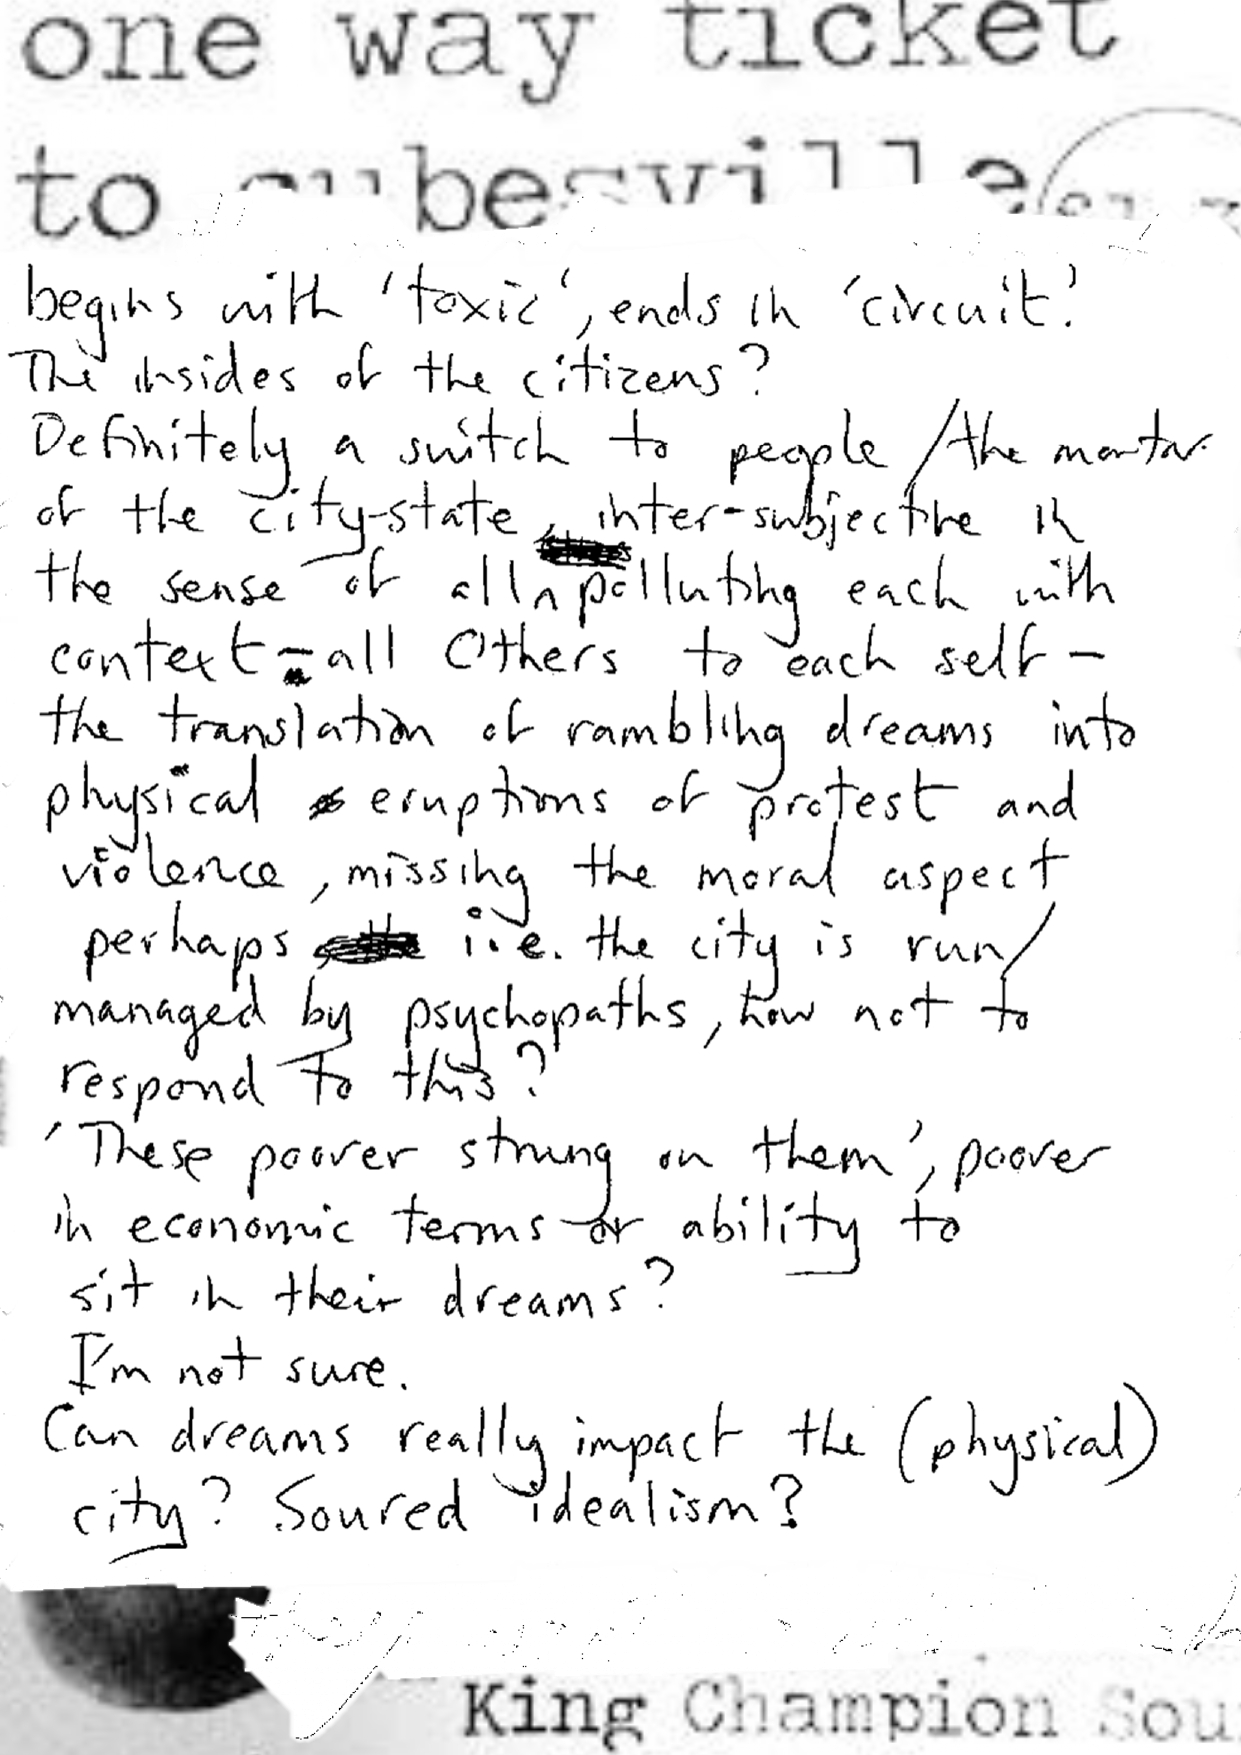 one way ticket
to cubesville
begins with 'toxic', ends in 'circuit'.
The insides of the citizens?
Definitely a switch to people / the mortar
of the city-state, inter-subjective in
the sense of all polluting each with
context - all Others to each self -
the translation of rambling dreams into
physical eruptions of protest and
violence, missing the moral aspect
perhaps i.e. the city is run/
managed by psychopaths, how not to
respond to this?
'These poorer strung on them', poorer
in economic terms or ability to
sit in their dreams?
I'm not sure.
Can dreams really impact the (physical)
city? Soured idealism?
King Champion Sou